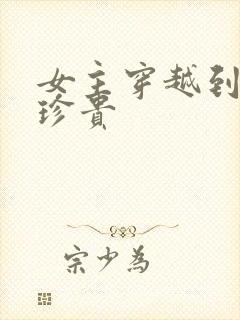 女主穿越到
珍贵
宗少为